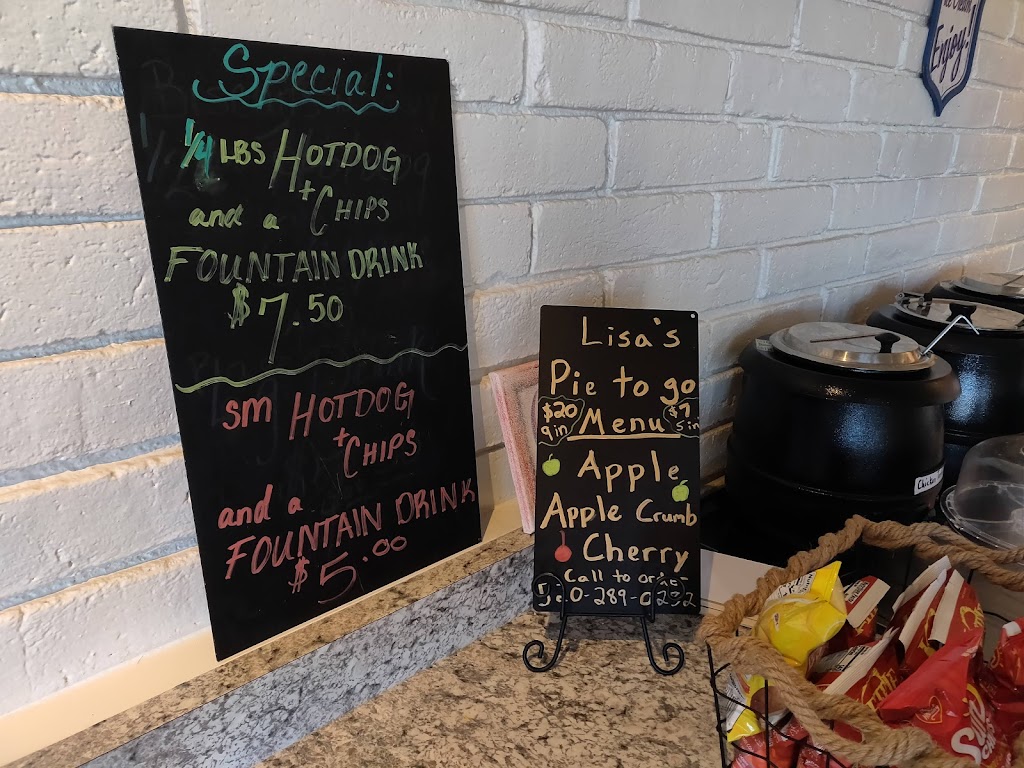 Special:
1/4 LBS HOTDOG
+ CHIPS
and a
FOUNTAIN DRINK
$7.50
SM HOTDOG
+ CHIPS
and a
FOUNTAIN DRINK
$5.00
Lisa's
Pie to go
$20 Menu $7
9in 5in
Apple
Apple Crumb
Cherry
Call to order
520-289-0232
Enjoy!
Sun